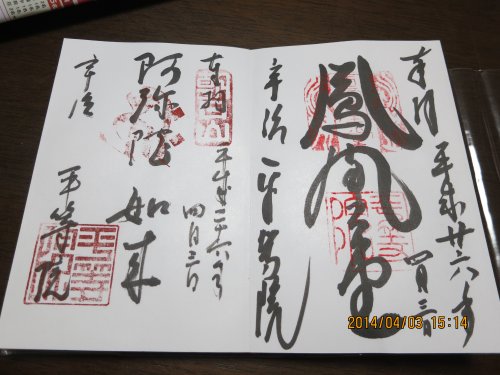 奉拝
平成廿六年
四月三日
鳳凰堂
宇治 平等院
奉拝
平成二十六年
四月三日
阿弥陀如来
宇治
平等院
2014/04/03 15:14